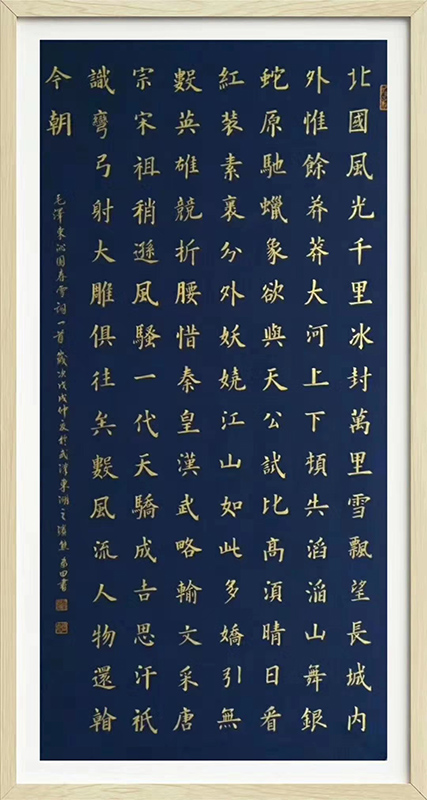 北國風光千里冰封萬里雪飄望長城内
外惟餘莽莽大河上下頓失滔滔山舞銀
蛇原馳蠟象欲與天公試比高須晴日看
紅裝素裹分外妖嬈江山如此多嬌引無
數英雄競折腰惜秦皇漢武略輸文采唐
宗宋祖稍遜風騷一代天驕成吉思汗祇
識彎弓射大雕俱往矣數風流人物還看
今朝
毛澤東沁園春雪詞一首歲次戊戌仲夏於武漢東湖之濱書